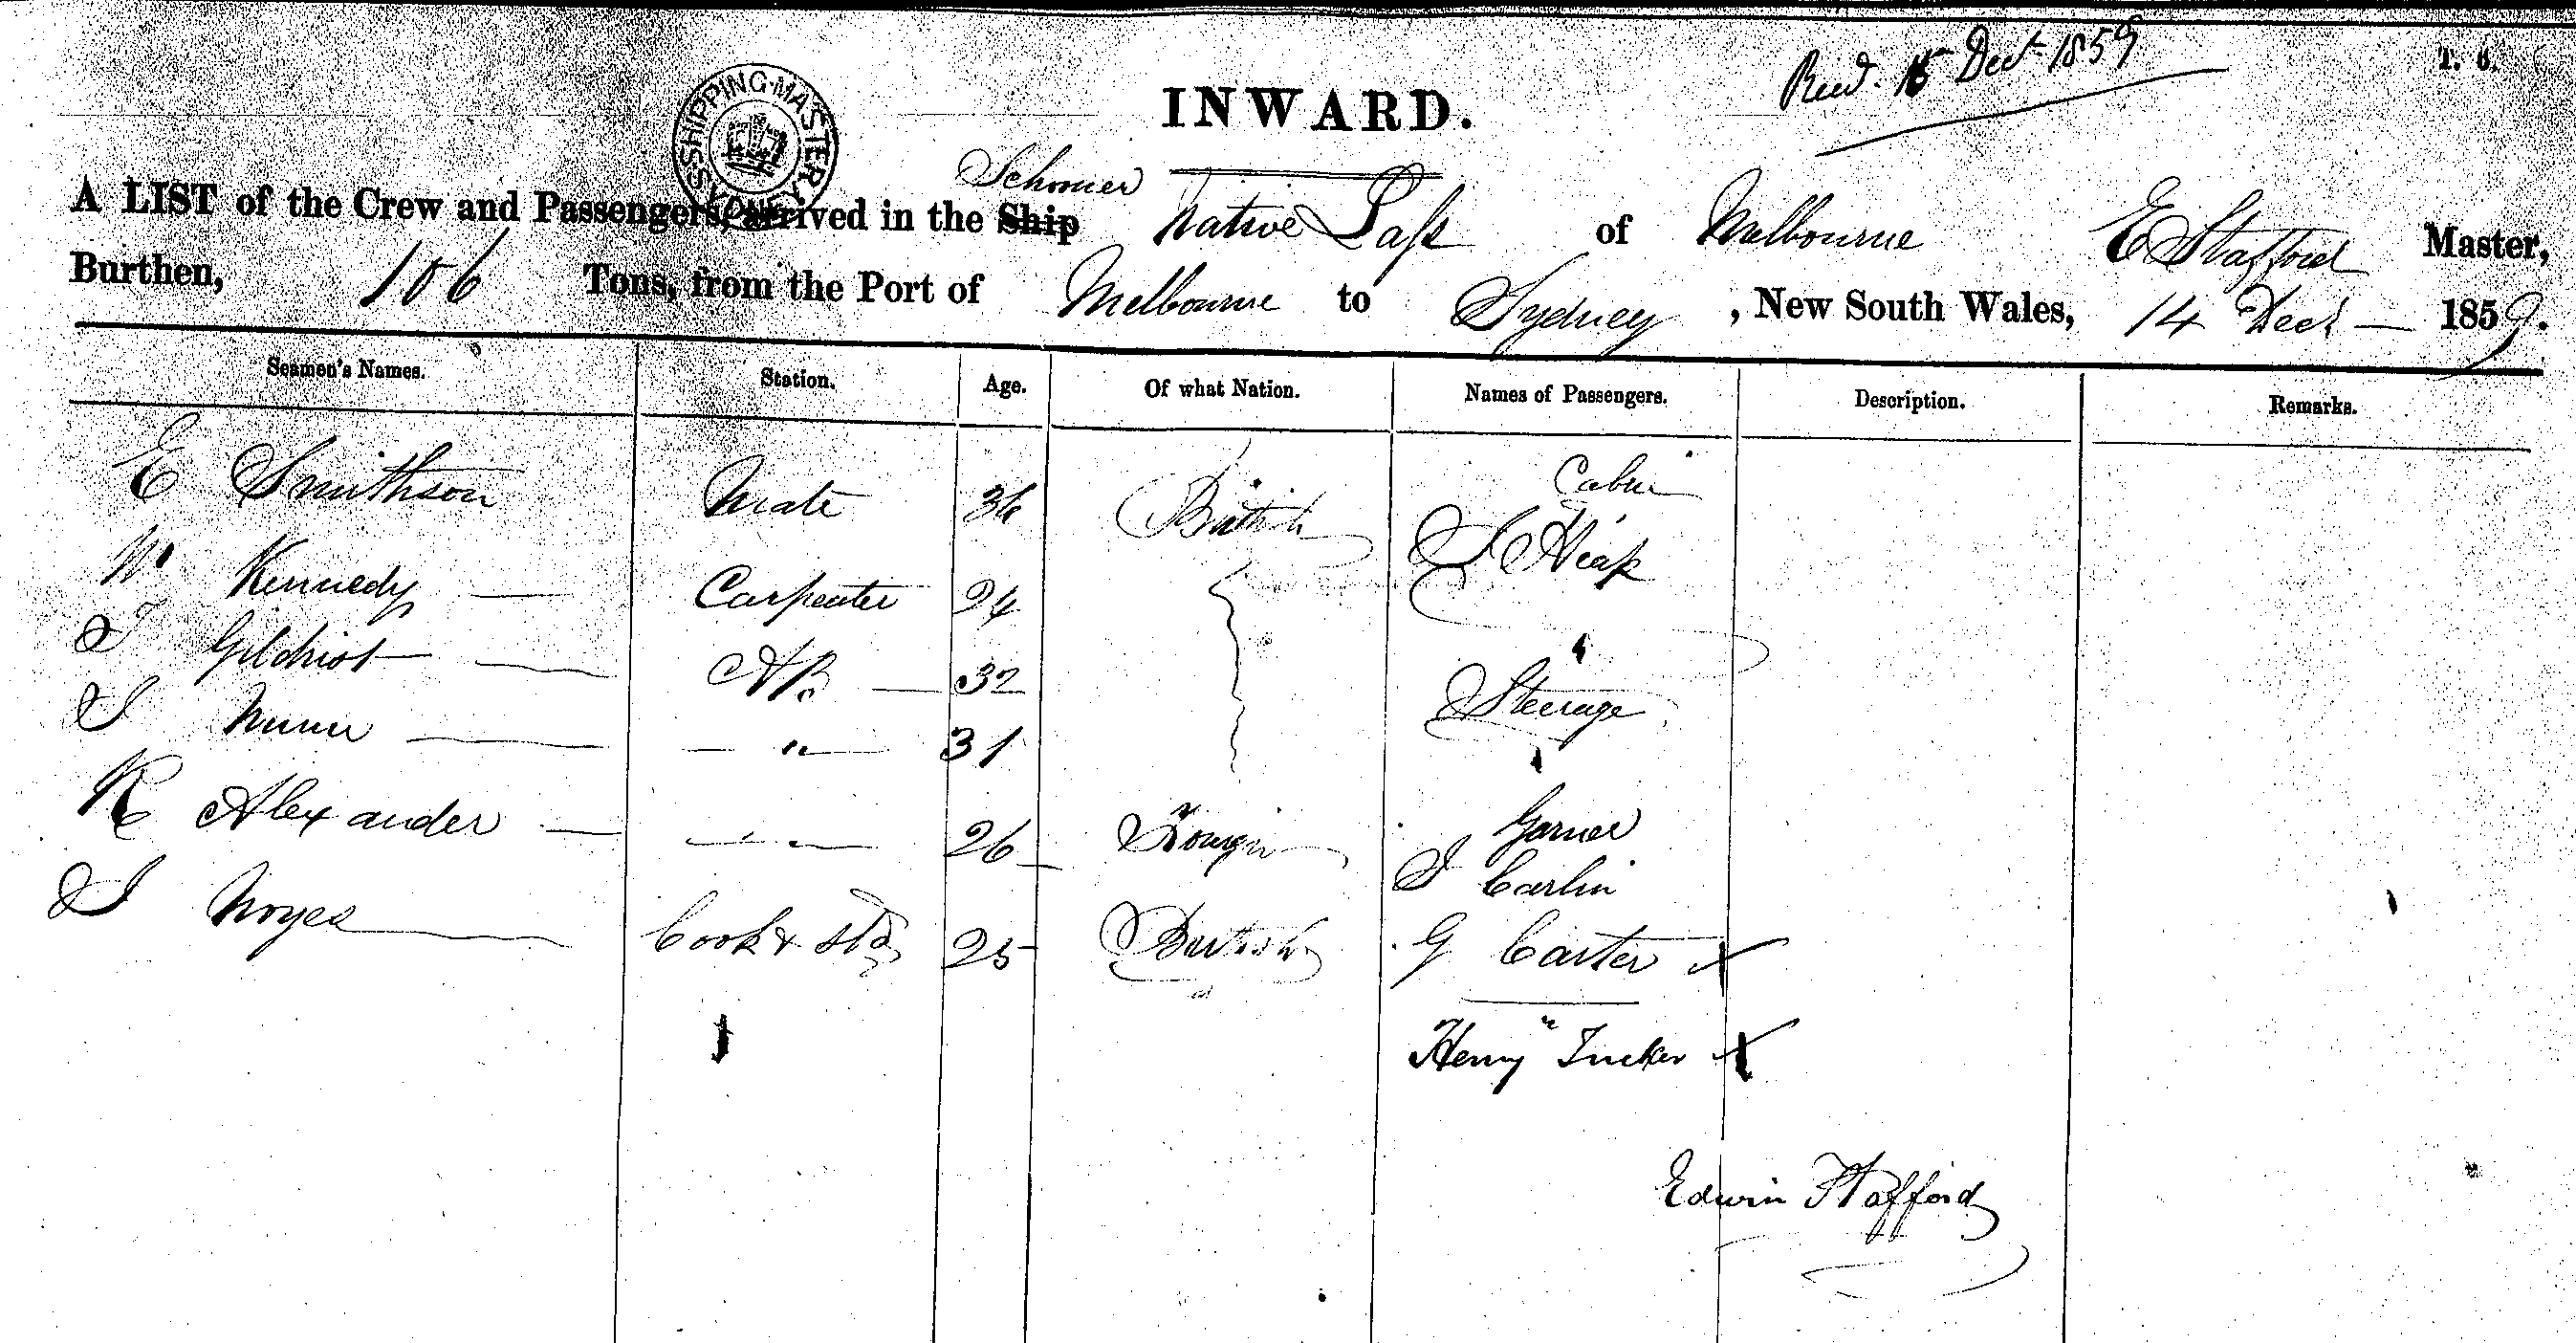 Recd. 15 Decr 1859
T. 6.
SHIPPING MASTER SYDNEY
INWARD.
Schooner
A LIST of the Crew and Passengers, arrived in the Ship Native Lass of Melbourne E Stafford Master,
Burthen, 106 Tons, from the Port of Melbourne to Sydney, New South Wales, 14 Decr 1859.
Seamen's Names. Station. Age. Of what Nation. Names of Passengers. Description. Remarks.
E Smithson Mate 36 British Cabin
Heap
W Kennedy Carpenter 24
T Gilchrist AB 32 Steerage
J 〃 31
R Alexander 〃 26 Foreign Garner
J Carlin
J Noyes Cook & Std 25 British G Carter x
Henry Tucker x
Edwin Stafford